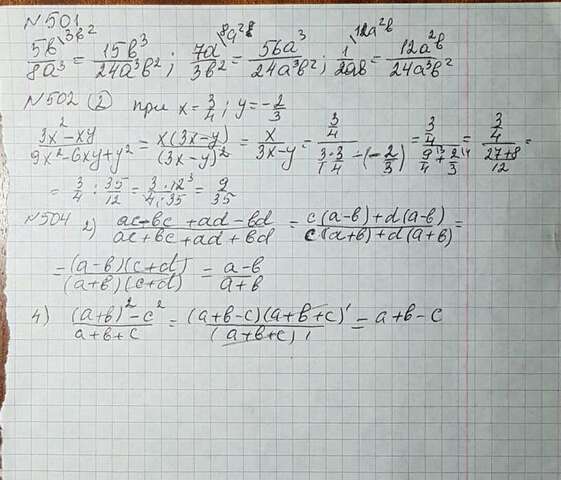 N501
5b\3b² / 8a³ = 15b³ / 24a³b² ; 7a\8a² / 3b² = 56a³ / 24a³b² ; 1\12a²b / 2ab = 12a²b / 24a³b²
N502 (2) при x = 3/4 ; y = -2/3
3x² - xy / 9x² - 6xy + y² = x(3x-y) / (3x-y)² = x / 3x-y = 3/4 / 3/1 · 3/4 - (-2/3) = 3/4 / 9/4\3 + 2/3\4 = 3/4 / 27+8/12 =
= 3/4 : 35/12 = 3·12³ / 4·35 = 9/35
N504 2) ac-bc + ad - bd / ac+bc+ad+bd = c(a-b)+d(a-b) / c(a+b)+d(a+b) =
= (a-b)(c+d) / (a+b)(c+d) = a-b / a+b
4) (a+b)² - c² / a+b+c = (a+b-c)(a+b+c)¹ / (a+b+c)₁ = a+b-c